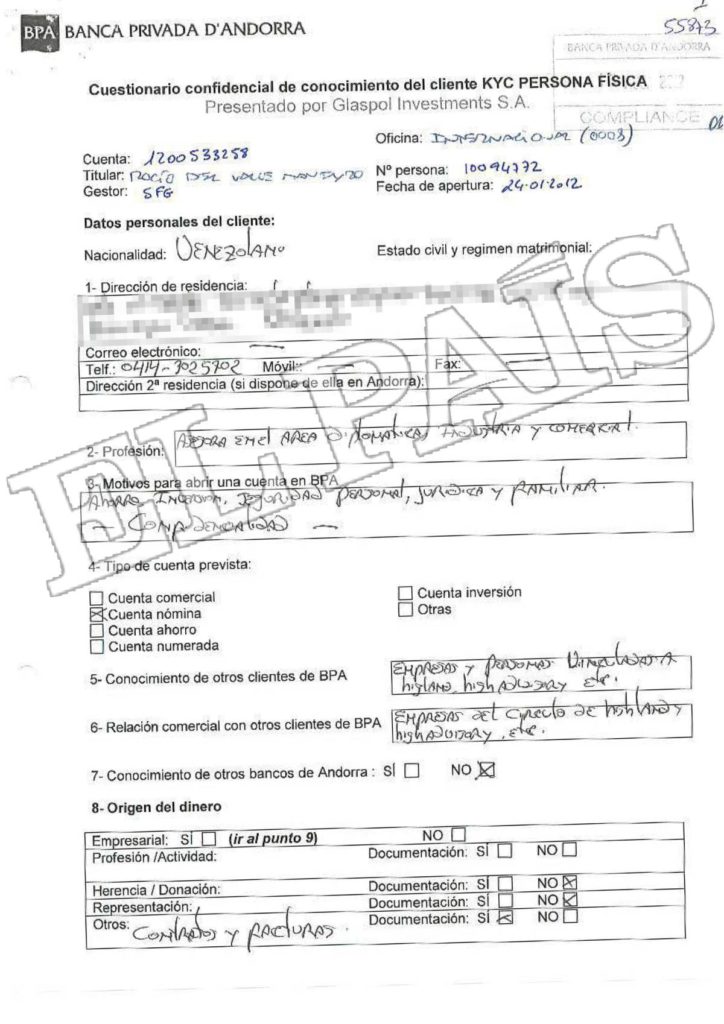 55873
BPA BANCA PRIVADA D'ANDORRA
BANCA PRIVADA D'ANDORRA
Cuestionario confidencial de conocimiento del cliente KYC PERSONA FÍSICA
Presentado por Glaspol Investments S.A.
COMPLIANCE
Oficina: INTERNACIONAL (0008)
Cuenta: 1200533258
Titular: ROCÍO DEL VALLE
Nº persona: 10094772
Gestor: SFG
Fecha de apertura: 24.01.2012
Datos personales del cliente:
Nacionalidad: VENEZOLANO
Estado civil y regimen matrimonial:
1- Dirección de residencia:
Correo electrónico: —
Telf.: 0414-3025702 Móvil:: — Fax: —
Dirección 2ª residencia (si dispone de ella en Andorra):
EL PAÍS
2- Profesión: ASESORA EN EL AREA INDUSTRIA Y COMERCIAL.
3- Motivos para abrir una cuenta en BPA
AHORRO, SEGURIDAD PERSONAL, JURIDICA Y FAMILIAR.
— CONFIDENCIALIDAD —
4- Tipo de cuenta prevista:
Cuenta comercial
Cuenta inversión
Cuenta nómina
Otras
Cuenta ahorro
Cuenta numerada
5- Conocimiento de otros clientes de BPA
EMPRESAS Y PERSONAS VINCULADAS A
highland, high ADVISORY etc.
6- Relación comercial con otros clientes de BPA
EMPRESAS DEL CIRCULO DE HIGHLAND Y
high ADVISORY, etc.
7- Conocimiento de otros bancos de Andorra : SÍ NO
8- Origen del dinero
Empresarial: SÍ (ir al punto 9) NO
Profesión /Actividad: Documentación: SÍ NO
Herencia / Donación: Documentación: SÍ NO
Representación: Documentación: SÍ NO
Otros: CONTRATOS Y FACTURAS. Documentación: SÍ NO